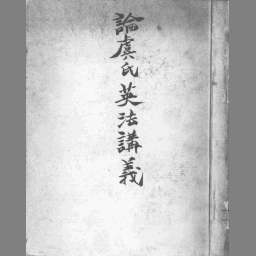 論虞氏英法講義